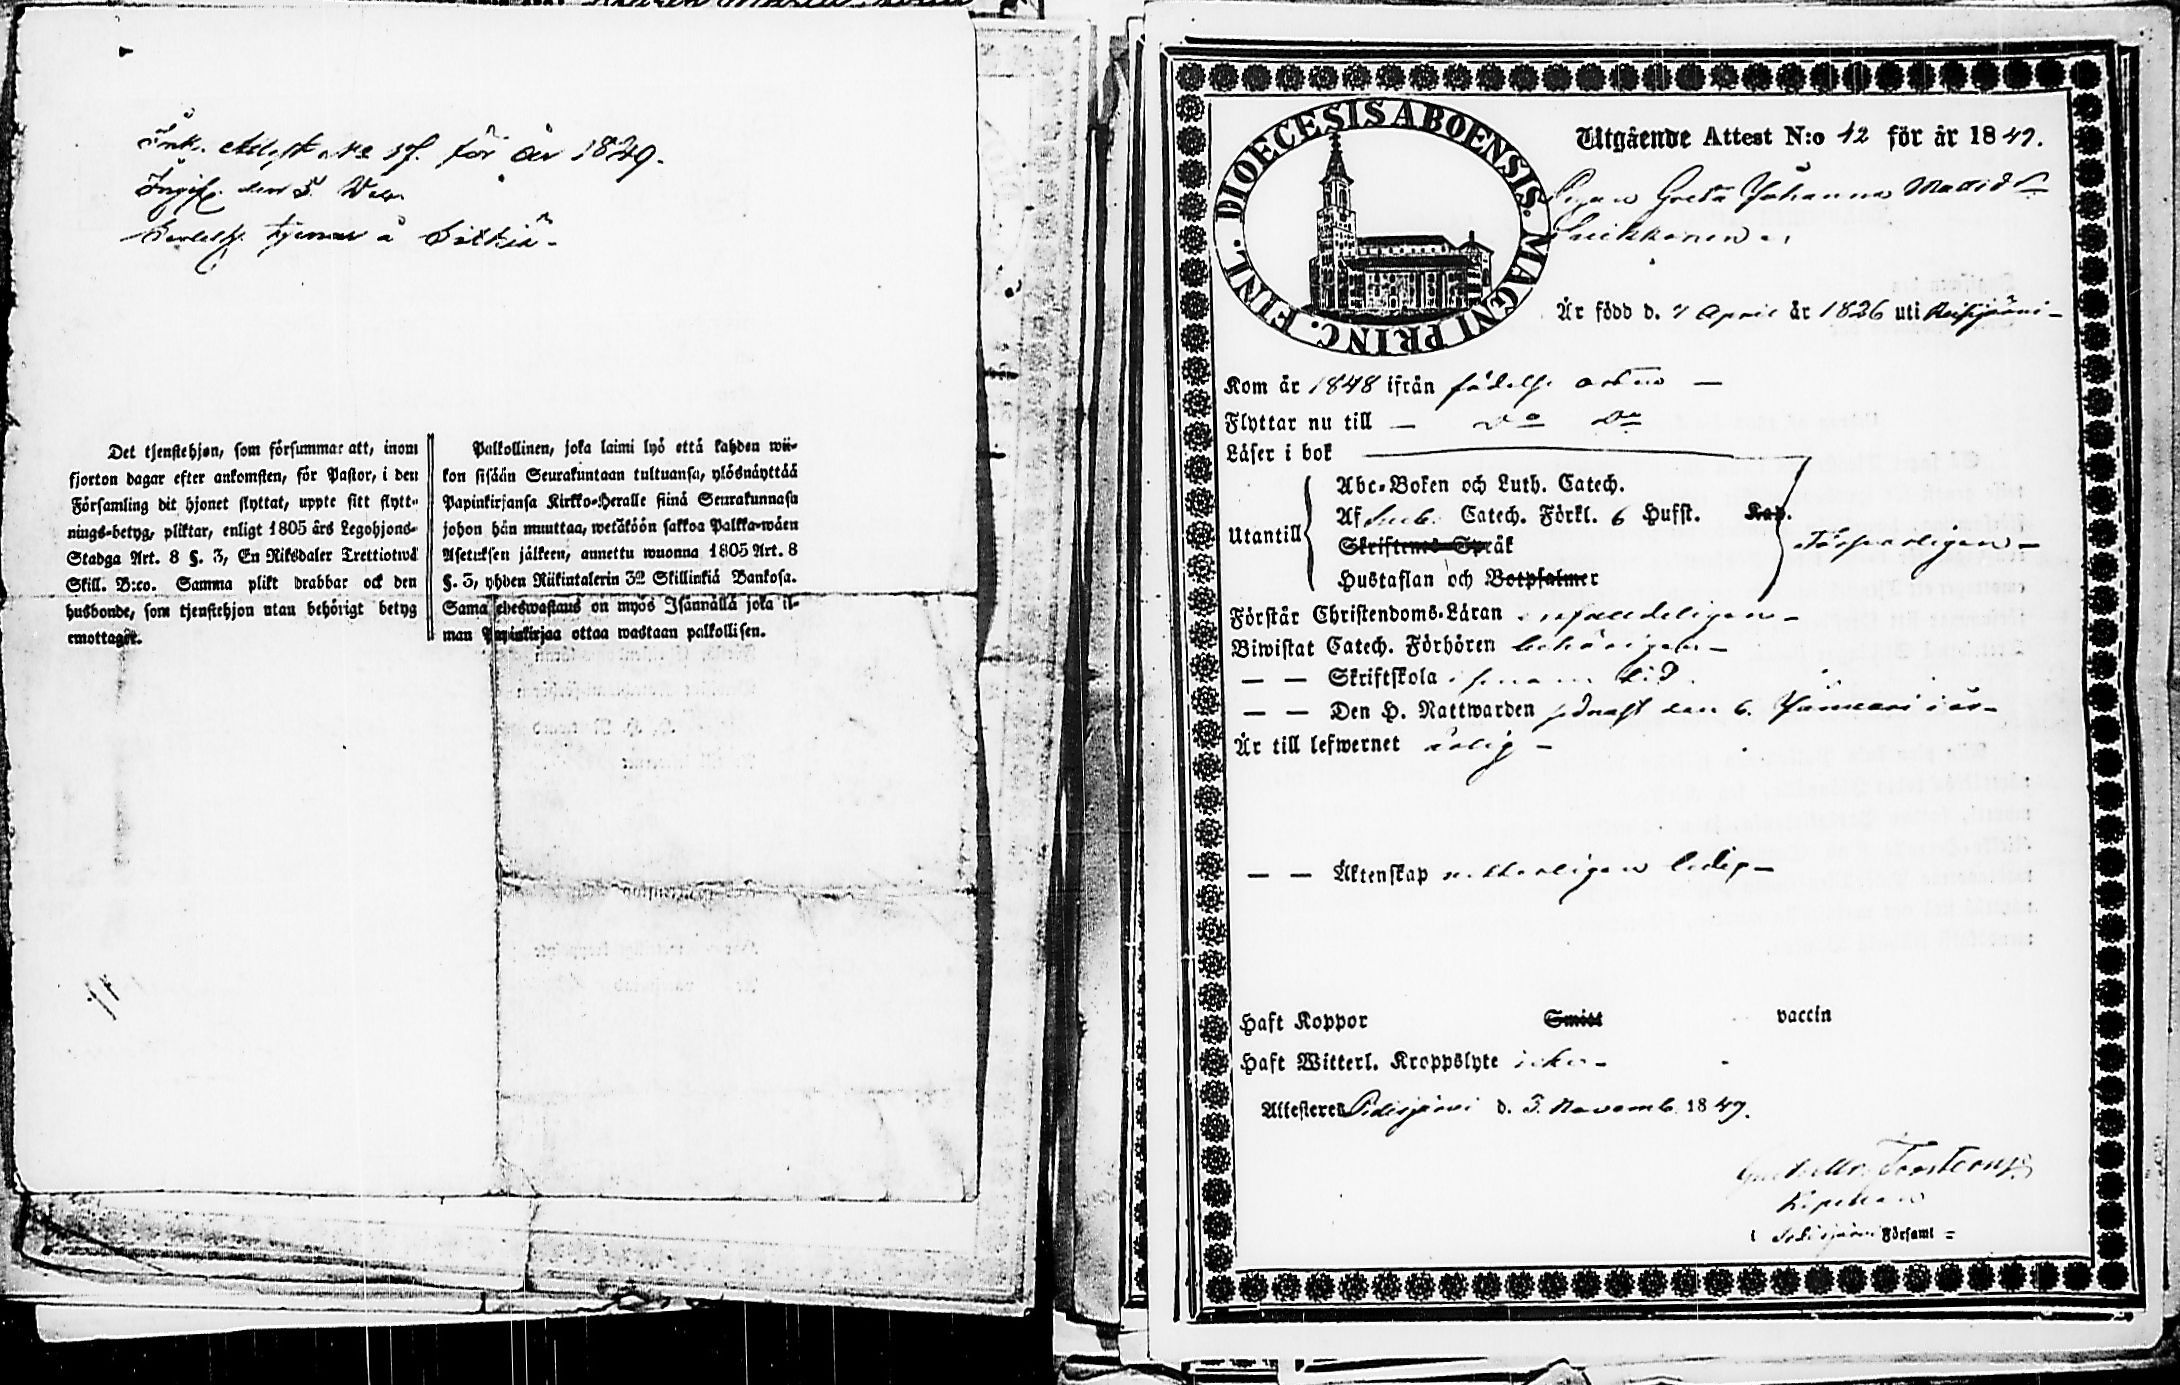 Ink. Attest No 17. för år 1849.
Ingif. den 5 Dec.
tjenar å
Det tjenstehjon, som försummar att, inom
fjorton dagar efter ankomsten, för Pastor, i den
Församling dit hjonet flyttat, uppte sitt flytt-
nings-betyg, pliktar, enligt 1805 års Legohjons-
Stadga Art. 8 §. 3, En Riksdaler Trettiotwå
Skill. B:co. Samma plikt drabbar ock den
husbonde, som tjenstehjon utan behörigt betyg
emottagit.
Palkollinen, joka laimi lyö että kahden wii-
kon sisään Seurakuntaan tultuansa, ylösnäyttää
Papinkirjansa Kirkko-Heralle siinä Seurakunnasa
johon hän muuttaa, wetäköön sakkoa Palkka-wäen
Asetuksen jälkeen, annettu wuonna 1805 Art. 8
§. 3, yhden Riikintalerin 32 Skillinkiä Bankosa.
Sama edeswastaus on myös Isännällä joka il-
man Papinkirjaa ottaa wastaan palkollisen.
DIOECESIS ABOENSIS. MAGNI PRINC. FINL.
Utgående Attest N:o 12 för år 1849.
Pigan Greta Johanna Mattsd:r
Är född d. 7 April år 1826 uti Reisjärvi
Kom år 1848 ifrån födelse orten —
Flyttar nu till — Do Do
Läser i bok
Utantill
Abc-Boken och Luth. Catech.
Af Sveb. Catech. Förkl. 6 Hufst. Kap.
Skriftenes Språk
Hustaflan och Botpsalmer
försvarligen —
Förstår Christendoms-Läran enfaldeligen —
Biwistat Catech. Förhören behörigen —
— — Skriftskola i sinom tid
— — Den H. Nattwarden sednast den 6. Januari i år —
Är till lefwernet ärlig —
— — Äktenskap witterligen ledig —
Haft Koppor Smitt vaccin
Haft Witterl. Kroppslyte icke —
Attesteres Pidisjärvi d. 3. Novemb. 1849.
Toorsten
Kapellan
i Pidisjärvi Församl —